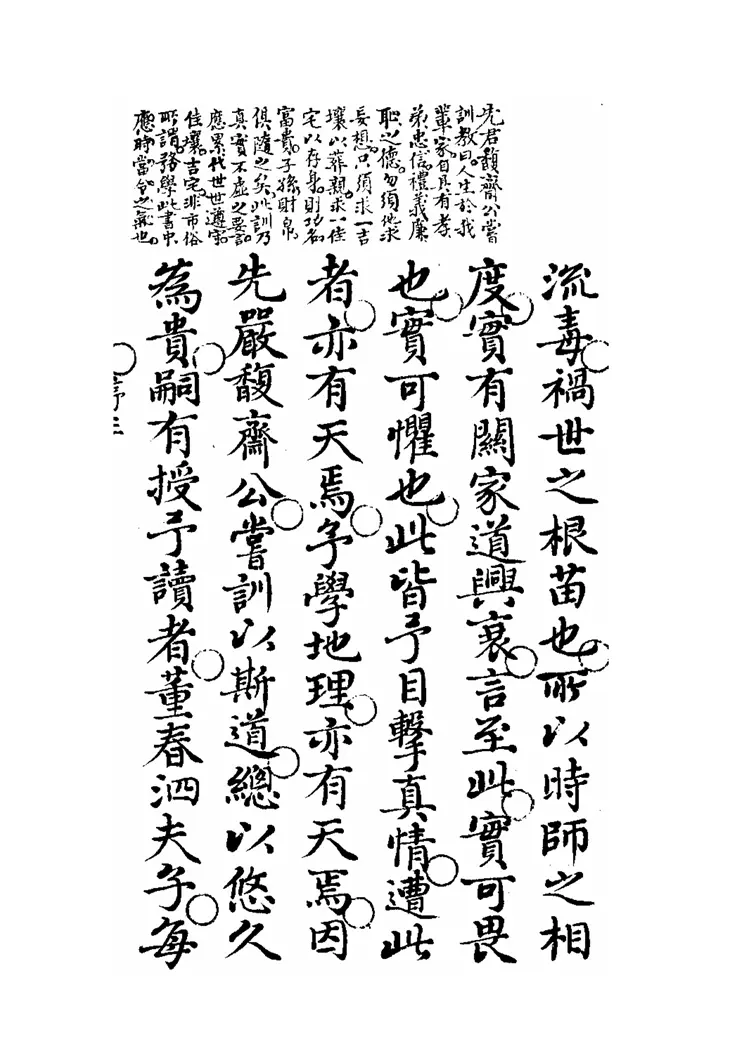 先君馥齋公嘗
訓教曰人生於我
輩家自具有孝
弟忠信禮義廉
恥之德勿須他求
妄想只須求一吉
壤以葬親求一佳
宅以存身則功名
富貴子孫財帛
俱隨之矣此訓乃
真實不虛之要語
應累代世世遵守
佳壤吉宅非市俗
所謂務學此書中
應時當令之氣也
流毒禍世之根苗也所以時師之相
度實有關家道興衰言至此實可畏
也實可懼也此皆予目擊真情遭此
者亦有天焉予學地理亦有天焉因
先嚴馥齋公嘗訓以斯道總以悠久
為貴嗣有授予讀者董春泗夫子每
序三